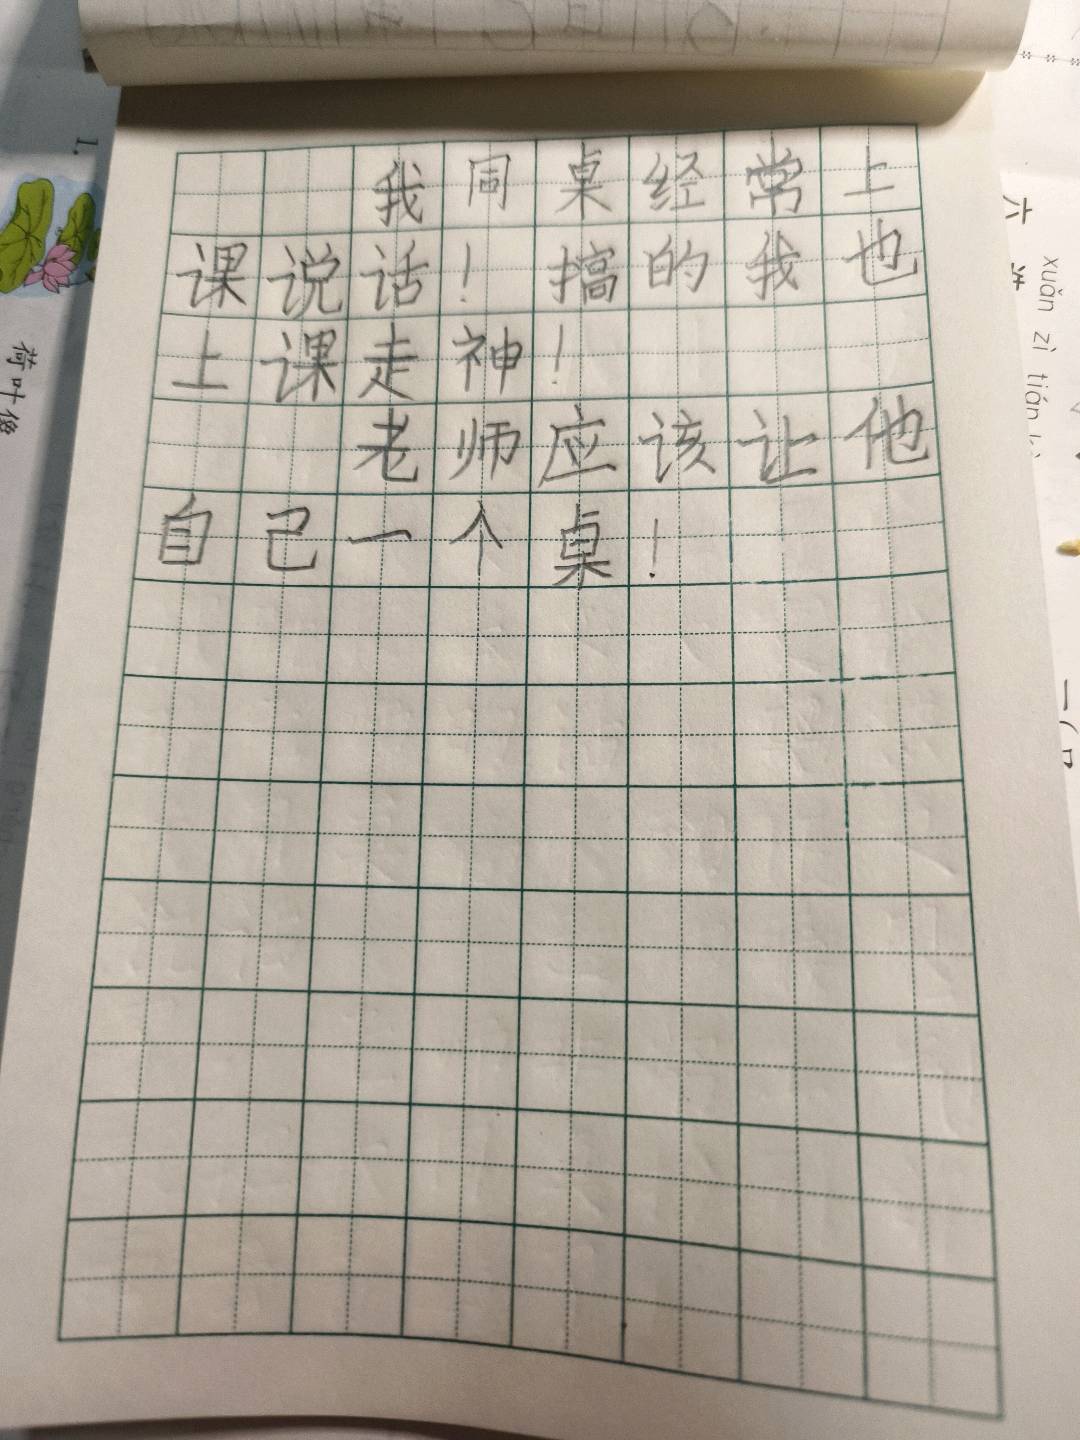 我周桌经常上
课说话！搞的我也
上课走神！
老师应该让他
自己一个桌！
1.
荷叶像
六
xuǎn zì tián
一（